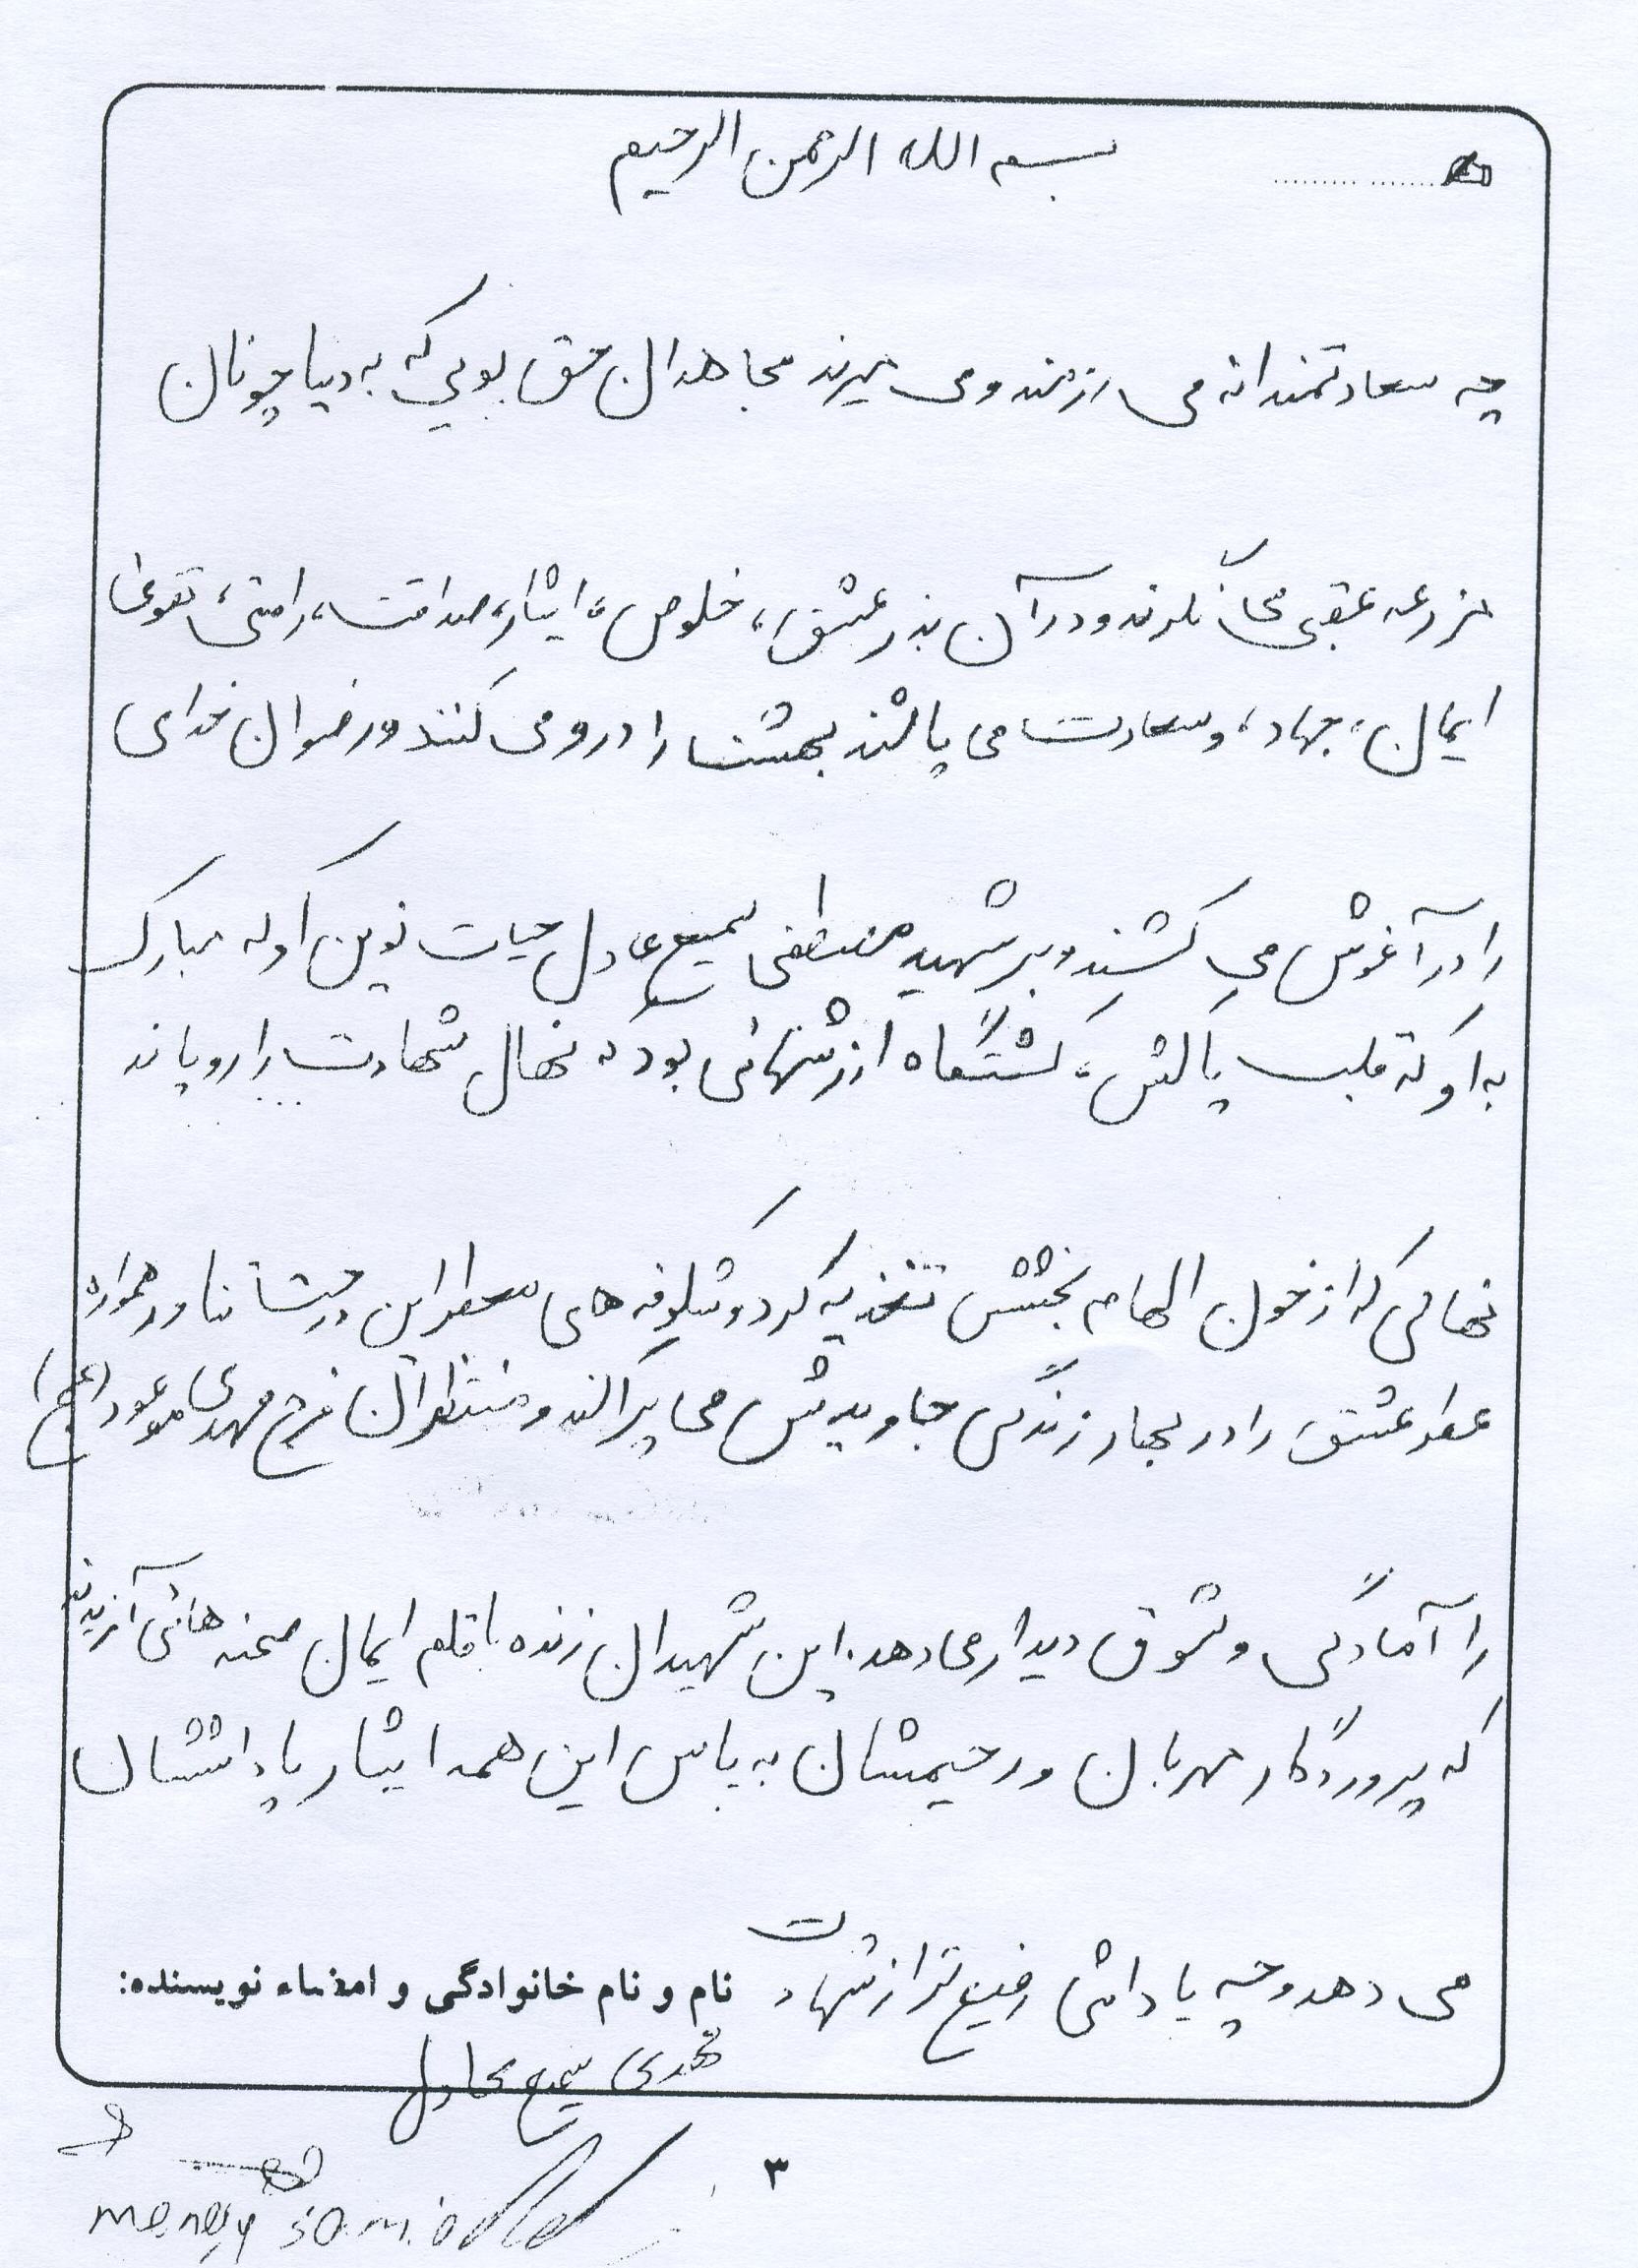 بسم الله الرحمن الرحیم
چه سعادتمندانه می رزمند و می میرند مجاهدان حق بویی که به دنیا چونان
مزرعه عقبی می نگرند و در آن بذر عشق، خلوص، ایثار، صداقت، راستی، تقوی
ایمان، جهاد، و سعادت می پاشند بهشت را درو می کنند و رضوان خدای
را در آغوش می کشند و بر شهید مصطفی سمیع عادل حیات نوین او که مبارک
به او که قلب پاکش، کشتگاه ارزشهائی بود که نهال شهادت را رویاند
نهالی که از خون الهام بخشش تغذیه کرد و شکوفه های معطر این درخت تناور همواره
عطر عشق را در بهار زندگی جاویدش می پراکند و منتظران فرج مهدی موعود (عج)
را آمادگی و شوق دیدار می دهد. این شهیدان زنده با قلم ایمان صحنه هائی آفریدند
که پروردگار مهربان و رحیمشان به پاس این همه ایثار پاداششان
می دهد و چه پاداشی رفیع تر از شهادت
نام و نام خانوادگی و امضاء نویسنده:
مهدی سمیع عادل
۳